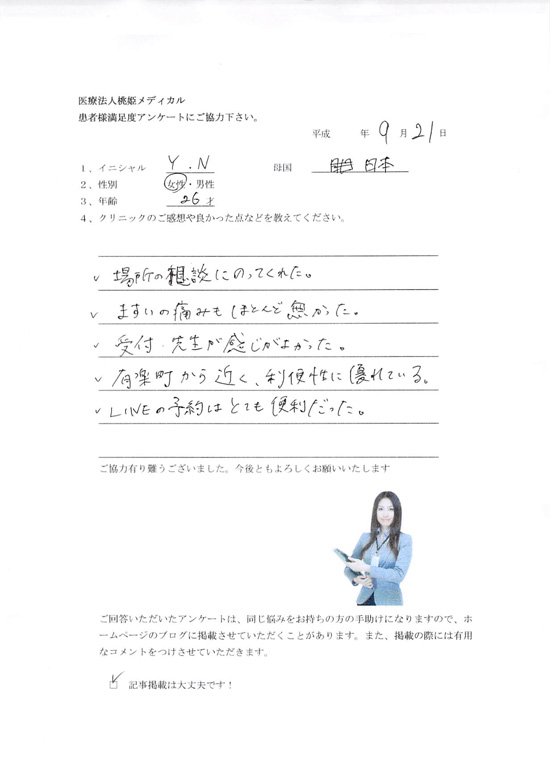 医療法人桃姫メディカル
患者様満足度アンケートにご協力下さい。
平成 年 9 月 21 日
1、イニシャル Y.N 母国 日本
2、性別 女性・男性
3、年齢 26 才
4、クリニックのご感想や良かった点などを教えてください。
✓ 場所の相談にのってくれた。
✓ ますいの痛みもほとんど無かった。
✓ 受付・先生が感じがよかった。
✓ 有楽町から近く、利便性に優れている。
✓ LINEの予約はとても便利だった。
ご協力有り難うございました。今後ともよろしくお願いいたします
ご回答いただいたアンケートは、同じ悩みをお持ちの方の手助けになりますので、ホ
ームページのブログに掲載させていただくことがあります。また、掲載の際には有用
なコメントをつけさせていただきます。
☑ 記事掲載は大丈夫です！